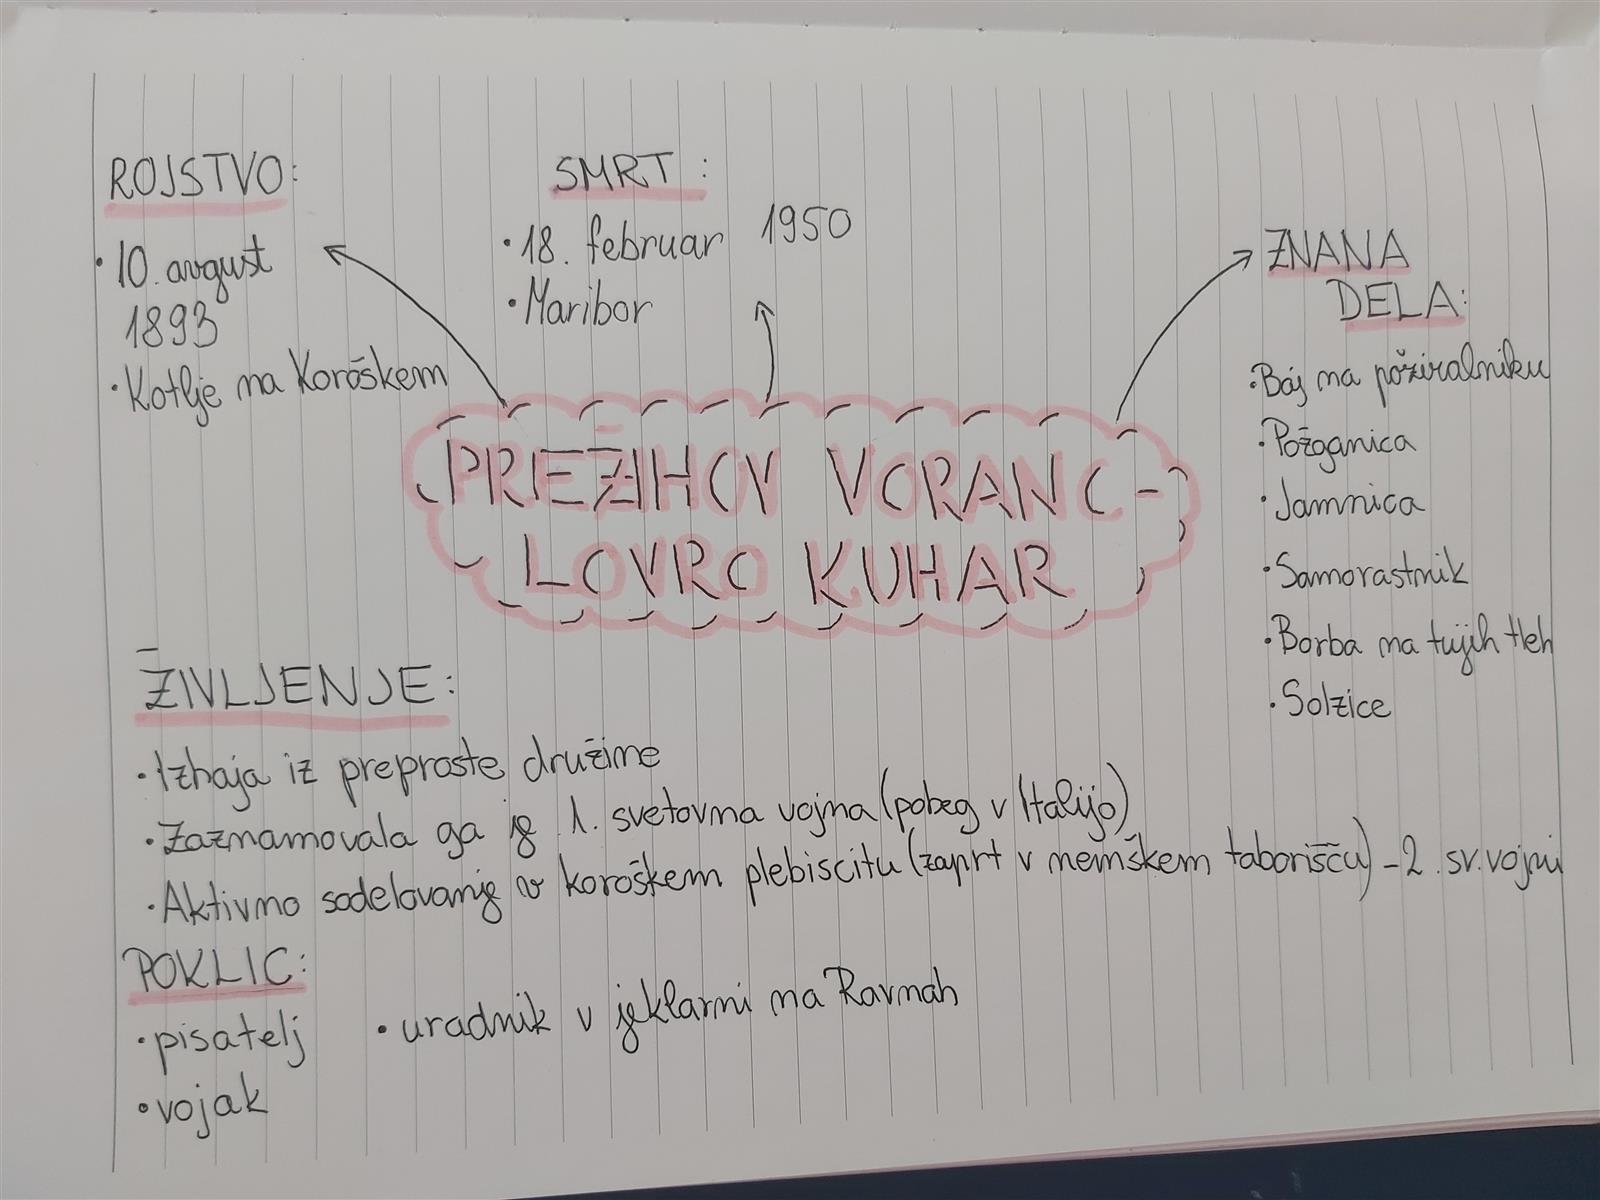 ROJSTVO:
• 10. avgust
1893
• Kotlje na Koroškem
SMRT:
• 18. februar 1950
• Maribor
ZNANA
DELA:
• Boj na požiralniku
• Požganica
• Jamnica
• Samorastnik
• Borba na tujih tleh
• Solzice
PREŽIHOV VORANC -
LOVRO KUHAR
ŽIVLJENJE:
• Izhaja iz preproste družine
• Zaznamovala ga je 1. svetovna vojna (pobeg v Italijo)
• Aktivno sodelovanje v koroškem plebiscitu (zaprt v nemškem taborišču) - 2. sv. vojni
POKLIC:
• pisatelj
• uradnik v jeklarni na Ravnah
• vojak